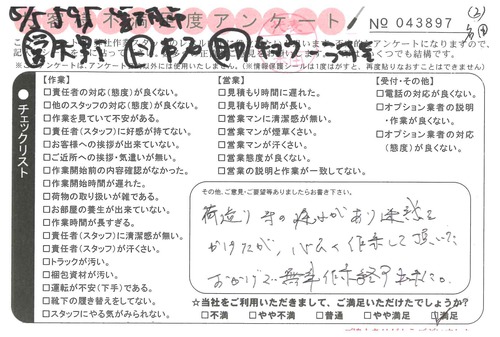 お客様不満足度アンケート
No 043897
チェックリスト
【作業】
□責任者の対応(態度)が良くない。
□他のスタッフの対応(態度)が良くない。
□作業を見ていて不安がある。
□責任者(スタッフ)に好感が持てない。
□お客様への挨拶が出来ていない。
□ご近所への挨拶・気遣いが無い。
□作業開始前の内容確認がなかった。
□作業開始時間が遅れた。
□荷物の取り扱いが雑である。
□お部屋の養生が出来ていない。
□作業時間が長すぎる。
□責任者(スタッフ)に清潔感が無い。
□責任者(スタッフ)が汗くさい。
□トラックが汚い。
□梱包資材が汚い。
□運転が不安(下手)である。
□靴下の履き替えをしてない。
□スタッフにやる気がみられない。
【営業】
□見積もり時間に遅れた。
□見積もり時間が長い。
□営業マンに清潔感が無い。
□営業マンが煙草くさい。
□営業マンが汗くさい。
□営業態度が良くない。
□営業の説明と作業が一致してない。
【受付・その他】
□電話の対応が良くない。
□オプション業者の説明
・作業が良くない。
□オプション業者の対応
(態度)が良くない。
その他、ご意見・ご要望等ありましたらお書き下さい。
荷造り等の残りがあり迷惑を
かけたが、心よく作業して頂いた
おかげで無事作業終了出来た。
☆当社をご利用いただきまして、ご満足いただけたでしょうか?
□不満 □やや不満 □普通 □やや満足 □満足